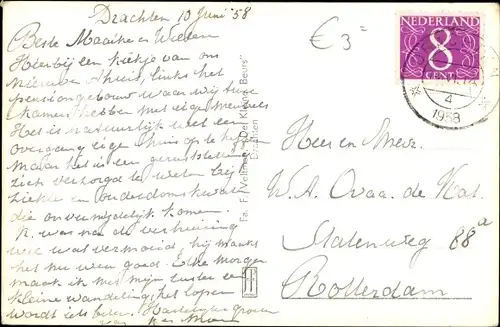 Drachten 10 Juni '58
Beste Maaike en Willem
Hierbij een kiekje van ons
nieuwe thuis, links het
pensiongebouw waar wij twee
kamers hebben met eige meubels
Het is natuurlijk wel een
overgang eige thuis op te
Maar het is een geruststelling
zich verzorgd te weten bij
ziekte en ouderdoms kwalen
die onvermijdelijk komen.
was na de verhuizing
wel wat vermoeid, hij maakt
het nu weer goed. Elke morgen
maak ik met mijn zuster een
kleine wandeling, het lopen
wordt iets beter. Hartelijke groeten
van
Fa. F. Veltman "De Kleine Beurs"
Drachten
€ 3=
NEDERLAND
8
CENT
4
1958
Heer en Mevr.
W. A. Ovaa. de Kat.
Statenweg 88a
Rotterdam